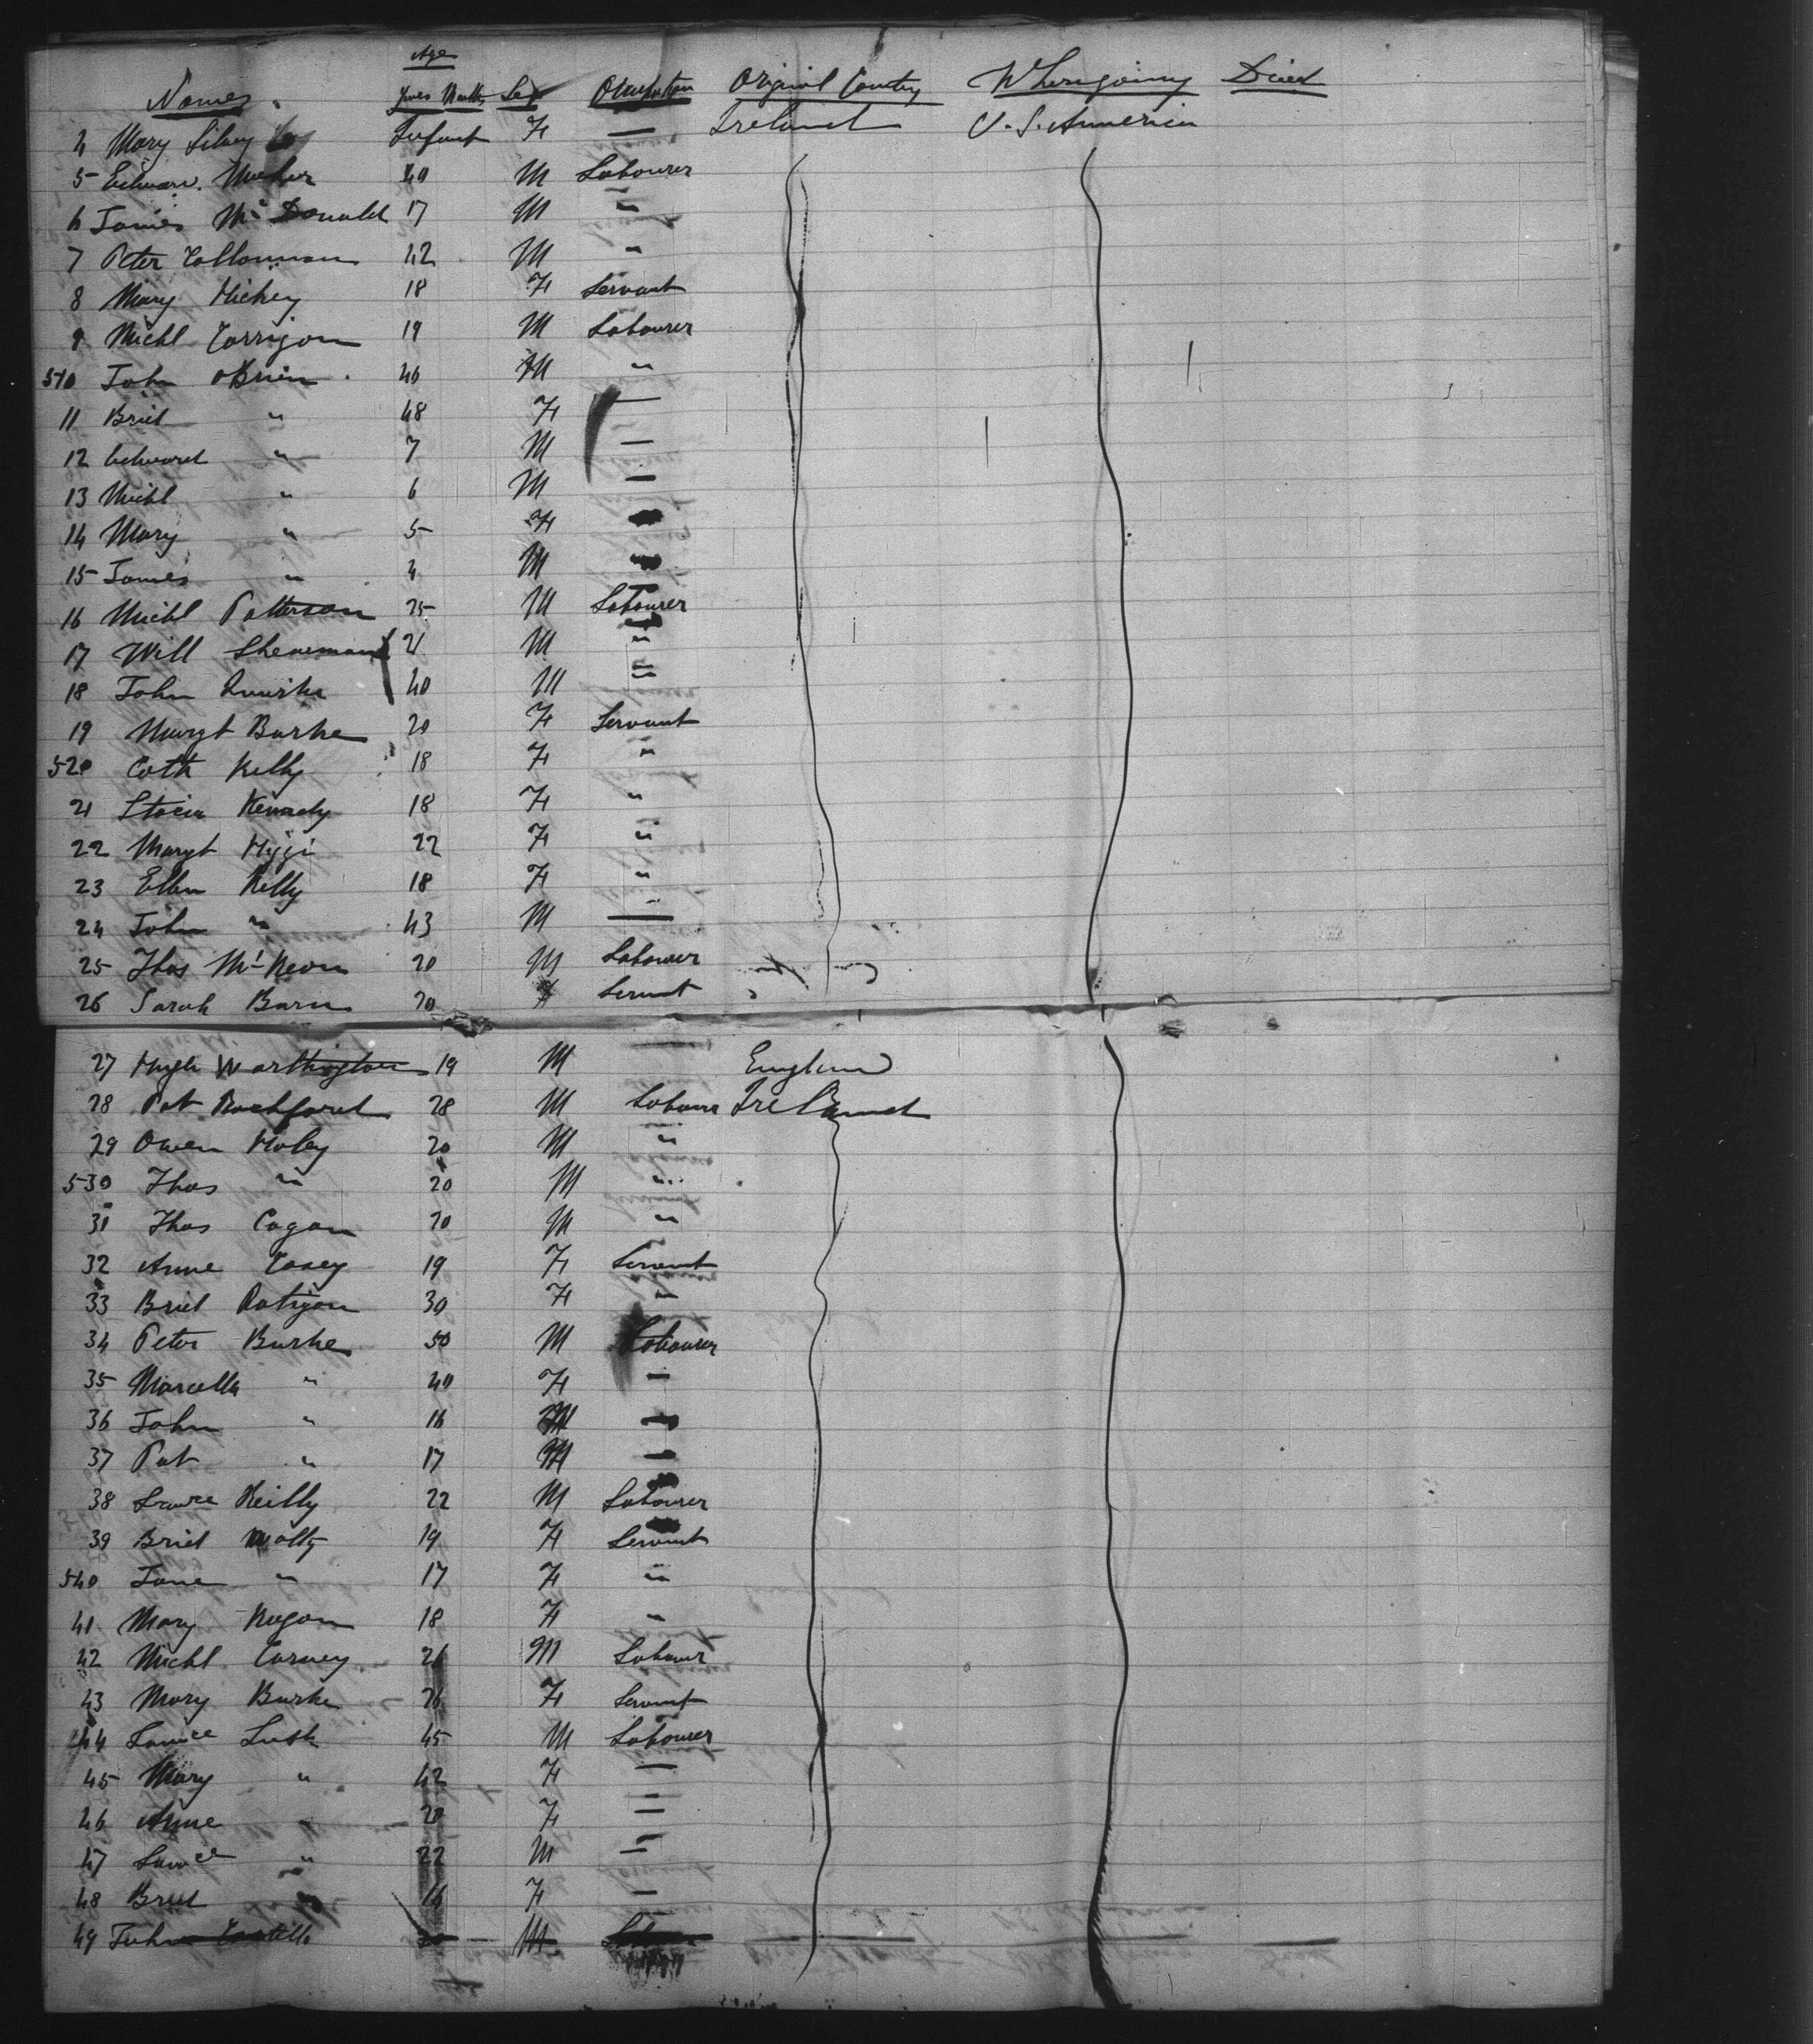 Age
Names Years Months Sex Occupation Original Country Where going Died
4 Mary Infant F — Ireland U.S. America
5 Edward. Maher 40 M Labourer
6 James McDonald 17 M "
7 Peter 42 M "
8 Mary Hickey 18 F Servant
9 Michl Corrigan 19 M Labourer
510 John OBrien 46 M "
11 Brid " 48 F —
12 Edward " 7 M —
13 Michl " 6 M —
14 Mary " 5 F
15 James " 4 M
16 Michl Patterson 25 M Labourer
17 Will 21 M "
18 John 40 M "
19 Margt Burke 20 F Servant
520 Cath Kelly 18 F "
21 Kennedy 18 F "
22 Margt 22 F "
23 Ellen Kelly 18 F "
24 John " 43 M —
25 Thos McKeon 20 M Labourer
26 Sarah Burn 20 F Servant
27 Hugh Worthington 19 M England
28 Pat Rochford 28 M Labourer Ireland
29 Owen 20 M "
530 Thos " 20 M "
31 Thos Cogan 20 M "
32 Anne Casey 19 F Servant
33 Brid Ratigan 30 F "
34 Peter Burke 50 M Labourer
35 Marcella " 40 F —
36 John " 16 M —
37 Pat " 17 M —
38 Reilly 22 M Labourer
39 Brid 19 F Servant
540 Jane " 17 F "
41 Mary 18 F "
42 Michl Carney 26 M Labourer
43 Mary Burke 26 F Servant
44 45 M Labourer
45 Mary " 42 F —
46 Anne " 20 F —
47 " 22 M —
48 Brid " 16 F —
49 John Costello 20 M